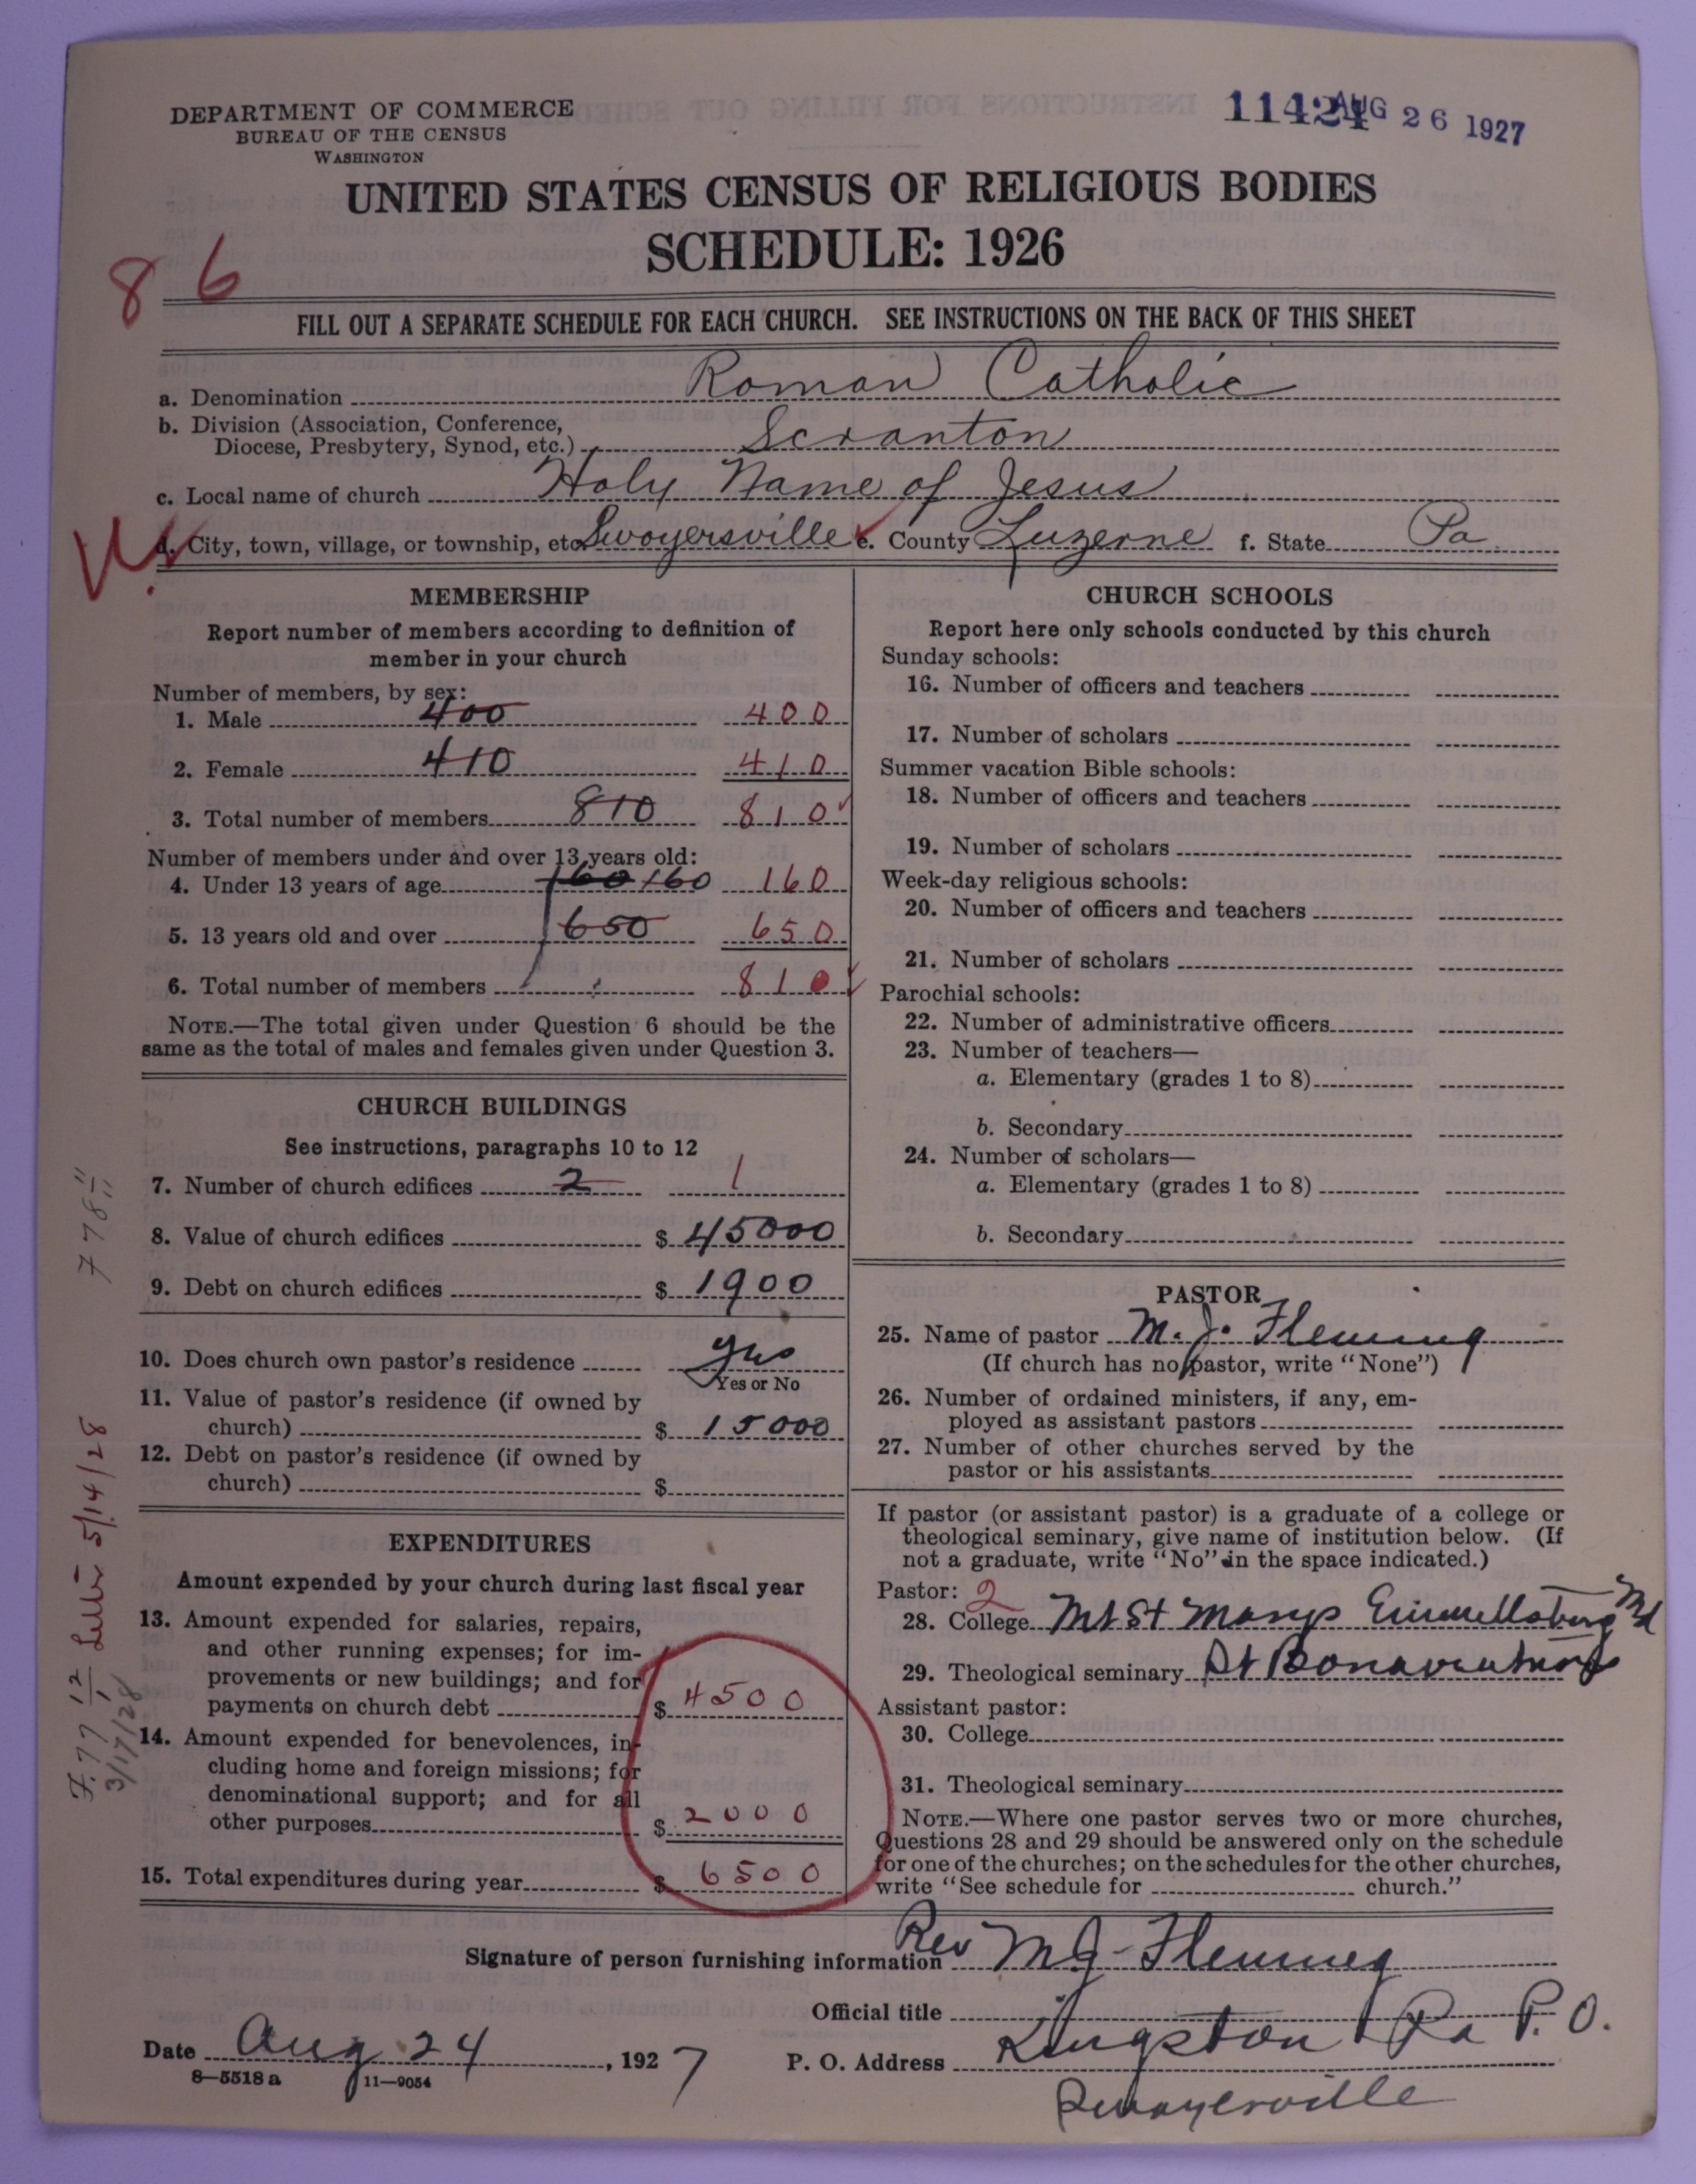 DEPARTMENT OF COMMERCE
BUREAU OF THE CENSUS
WASHINGTON
11424 AUG 26 1927
UNITED STATES CENSUS OF RELIGIOUS BODIES
SCHEDULE: 1926
8 6
FILL OUT A SEPARATE SCHEDULE FOR EACH CHURCH. SEE INSTRUCTIONS ON THE BACK OF THIS SHEET
a. Denomination Roman Catholic
b. Division (Association, Conference,
Diocese, Presbytery, Synod, etc.) Scranton
c. Local name of church Holy Name of Jesus
d. City, town, village, or township, etc. Swoyersville e. County Luzerne f. State Pa.
MEMBERSHIP
Report number of members according to definition of
member in your church
Number of members, by sex:
1. Male 400 400
2. Female 410 410
3. Total number of members 810 810
Number of members under and over 13 years old:
4. Under 13 years of age 160 160 160
5. 13 years old and over 650 650
6. Total number of members 810
NOTE.—The total given under Question 6 should be the
same as the total of males and females given under Question 3.
CHURCH BUILDINGS
See instructions, paragraphs 10 to 12
7. Number of church edifices 2 1
8. Value of church edifices $ 45000
9. Debt on church edifices $ 1900
10. Does church own pastor's residence yes
Yes or No
11. Value of pastor's residence (if owned by
church) $ 15000
12. Debt on pastor's residence (if owned by
church) $
EXPENDITURES
Amount expended by your church during last fiscal year
13. Amount expended for salaries, repairs,
and other running expenses; for im-
provements or new buildings; and for
payments on church debt $ 4500
14. Amount expended for benevolences, in-
cluding home and foreign missions; for
denominational support; and for all
other purposes $ 2000
15. Total expenditures during year $ 6500
778
Letter 5/14/28
3/17/28
CHURCH SCHOOLS
Report here only schools conducted by this church
Sunday schools:
16. Number of officers and teachers
17. Number of scholars
Summer vacation Bible schools:
18. Number of officers and teachers
19. Number of scholars
Week-day religious schools:
20. Number of officers and teachers
21. Number of scholars
Parochial schools:
22. Number of administrative officers
23. Number of teachers—
a. Elementary (grades 1 to 8)
b. Secondary
24. Number of scholars—
a. Elementary (grades 1 to 8)
b. Secondary
PASTOR
25. Name of pastor M. J. Fleming
(If church has no pastor, write "None")
26. Number of ordained ministers, if any, em-
ployed as assistant pastors
27. Number of other churches served by the
pastor or his assistants
If pastor (or assistant pastor) is a graduate of a college or
theological seminary, give name of institution below. (If
not a graduate, write "No" in the space indicated.)
Pastor: 2
28. College Mt St Marys Emmettsburg Md
29. Theological seminary St Bonaventure
Assistant pastor:
30. College
31. Theological seminary
NOTE.—Where one pastor serves two or more churches,
Questions 28 and 29 should be answered only on the schedule
for one of the churches; on the schedules for the other churches,
write "See schedule for church."
Signature of person furnishing information Rev M J Fleming
Official title
Date Aug 24, 1927 P. O. Address Kingston Pa P. O.
8—5518 a 11—9054
Swoyerville